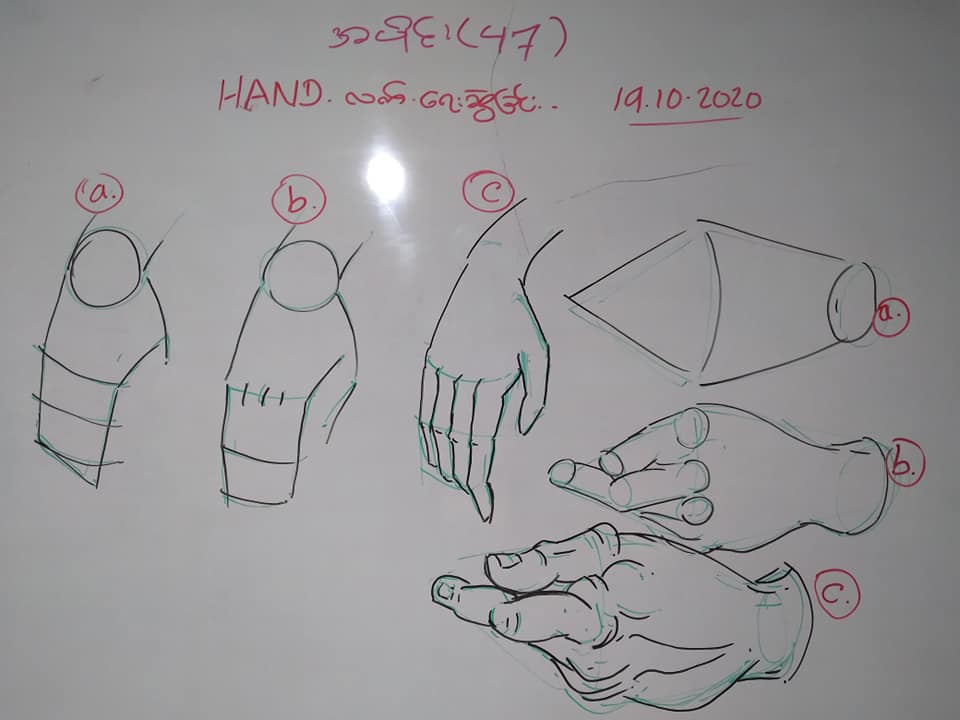 အပိုင်း(47)
HAND. လက်.ရေးဆွဲခြင်း.. 19.10.2020
a. b. c
a.
b.
c.